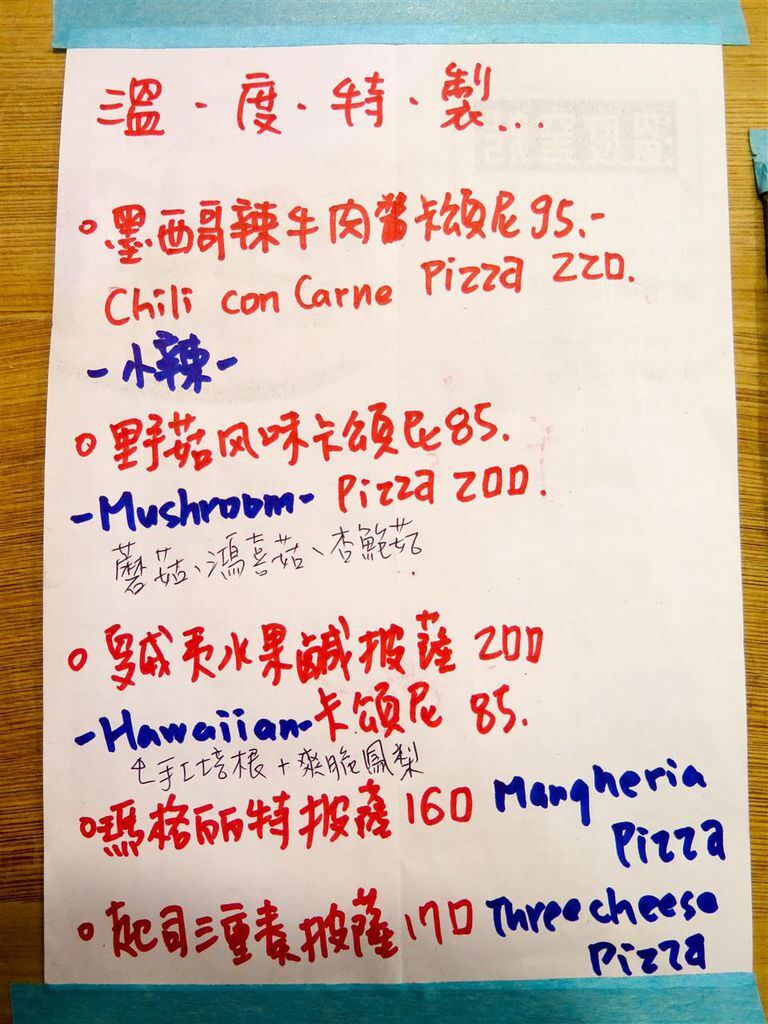 溫·度·特·製...
。墨西哥辣牛肉醬卡頌尼95.-
Chili con Carne Pizza 220.
-小辣-
。野菇风味卡頌尼85.
-Mushroom- Pizza 200.
蘑菇、鴻喜菇、杏鮑菇
。夏威夷水果鹹披薩 200
-Hawaiian-卡頌尼 85.
手工培根+爽脆鳳梨
。瑪格丽特披薩 160 Mangheria
Pizza
。起司三重奏披薩 170 Three cheese
Pizza